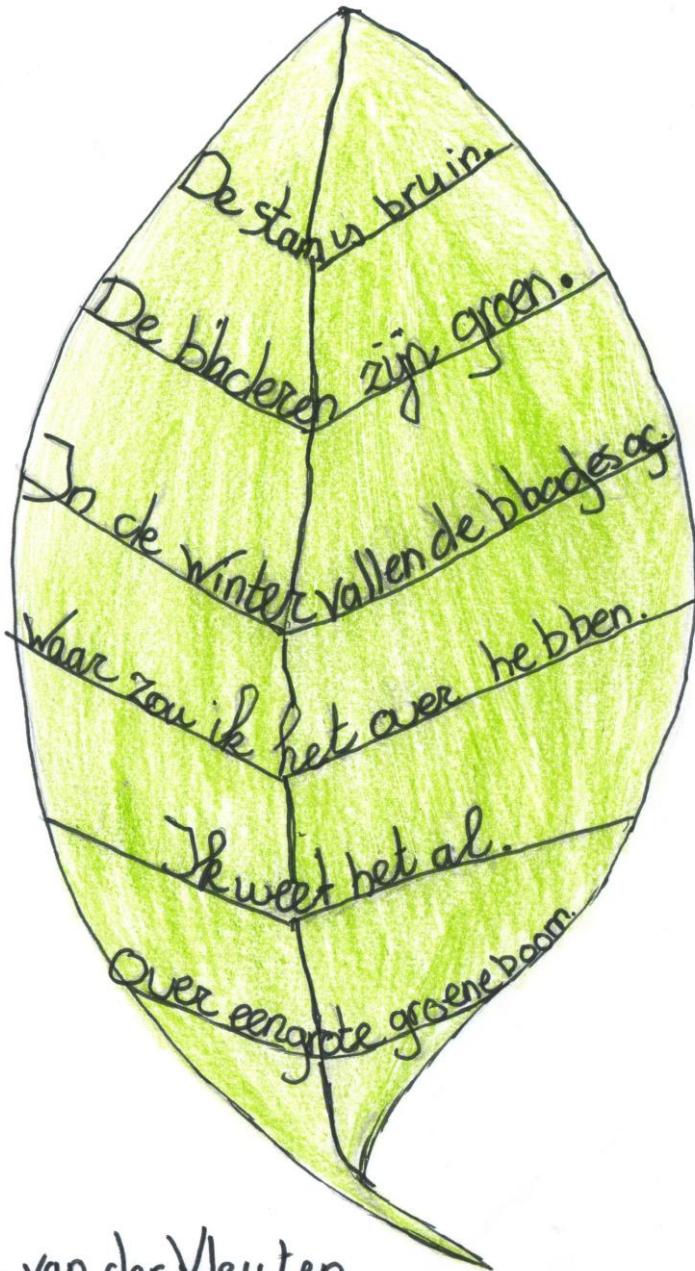 De stam is bruin.
De bladeren zijn groen.
In de winter vallen de blaadjes af.
Waar zou ik het over hebben.
Ik weet het al.
Over een grote groene boom.
van der Vleuten